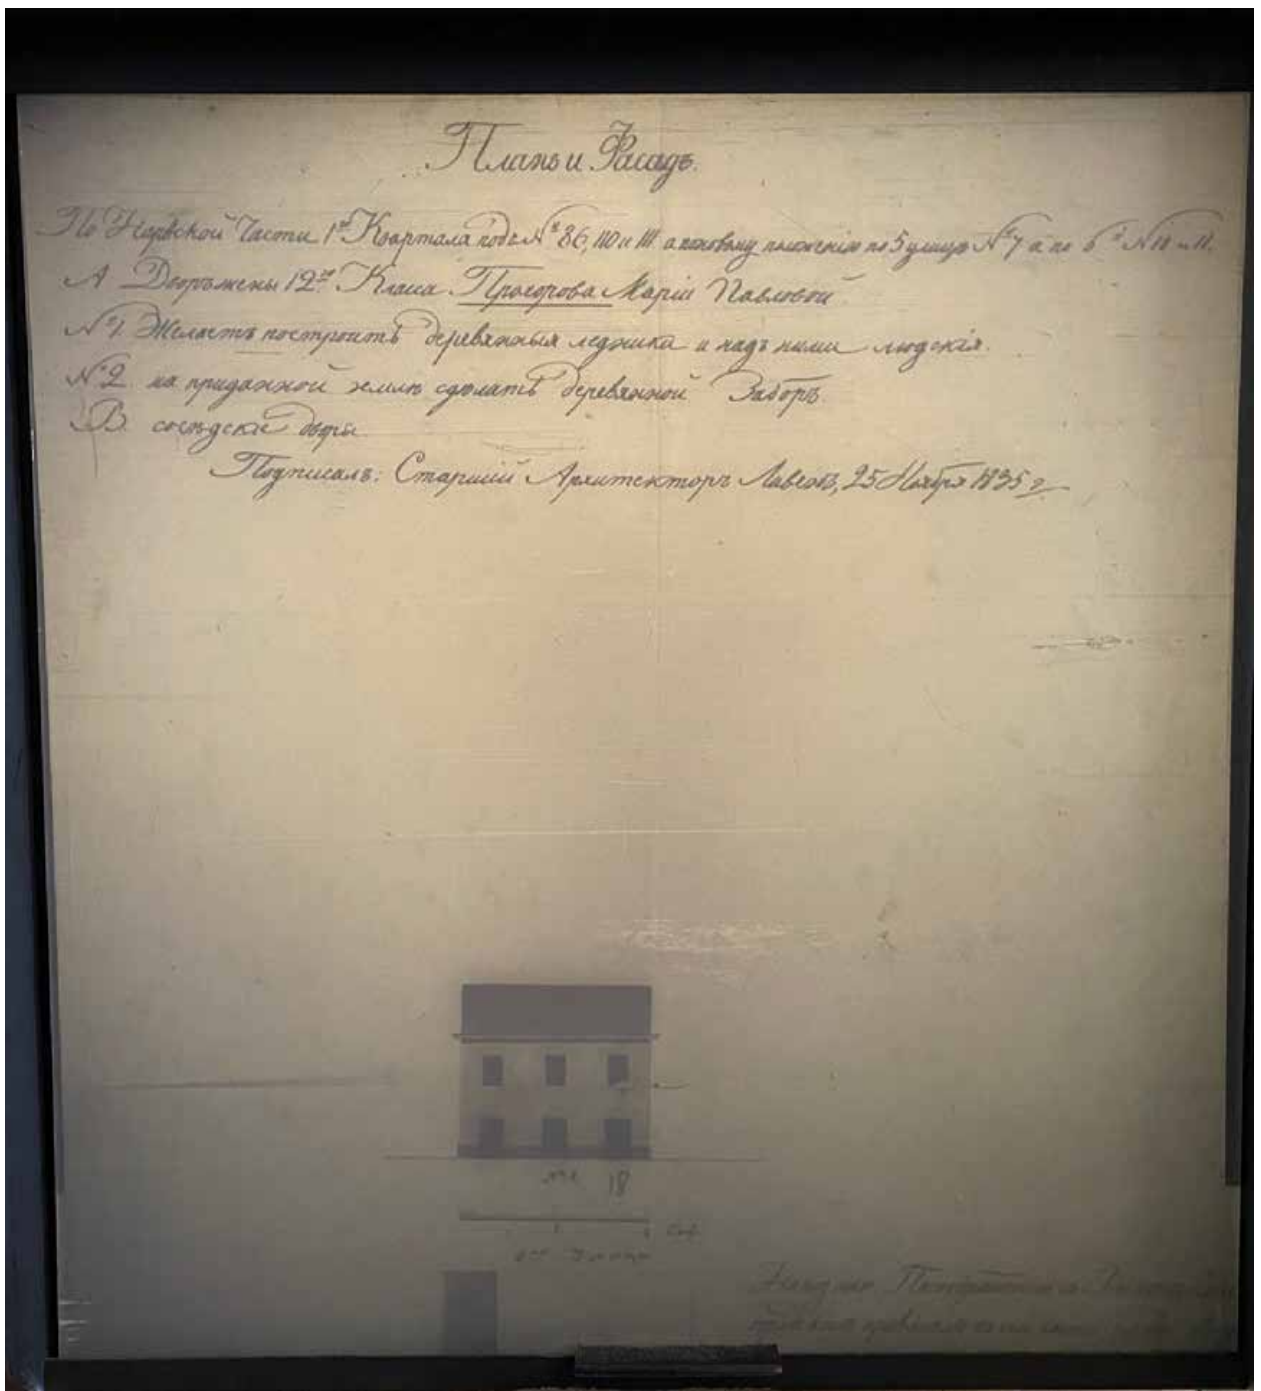 Планъ и Фасадъ.
По Нарвской Части 1го Квартала подъ №№ 86, 110 и 111. а по новому положенію по 5 улицѣ № 7 а по 6й № 10 и 11.
А Двор. жены 12го Класа Маріи Павловой
№ 1. Желаетъ построить деревянныя ледника и надъ ними людскія.
№ 2 на приданной землѣ сдѣлать деревянной Заборъ.
В. сосѣдскіе дворы
Подписалъ: Старшій Архитекторъ 25 Ноября 1835 г.
№ 1 18
Саж.